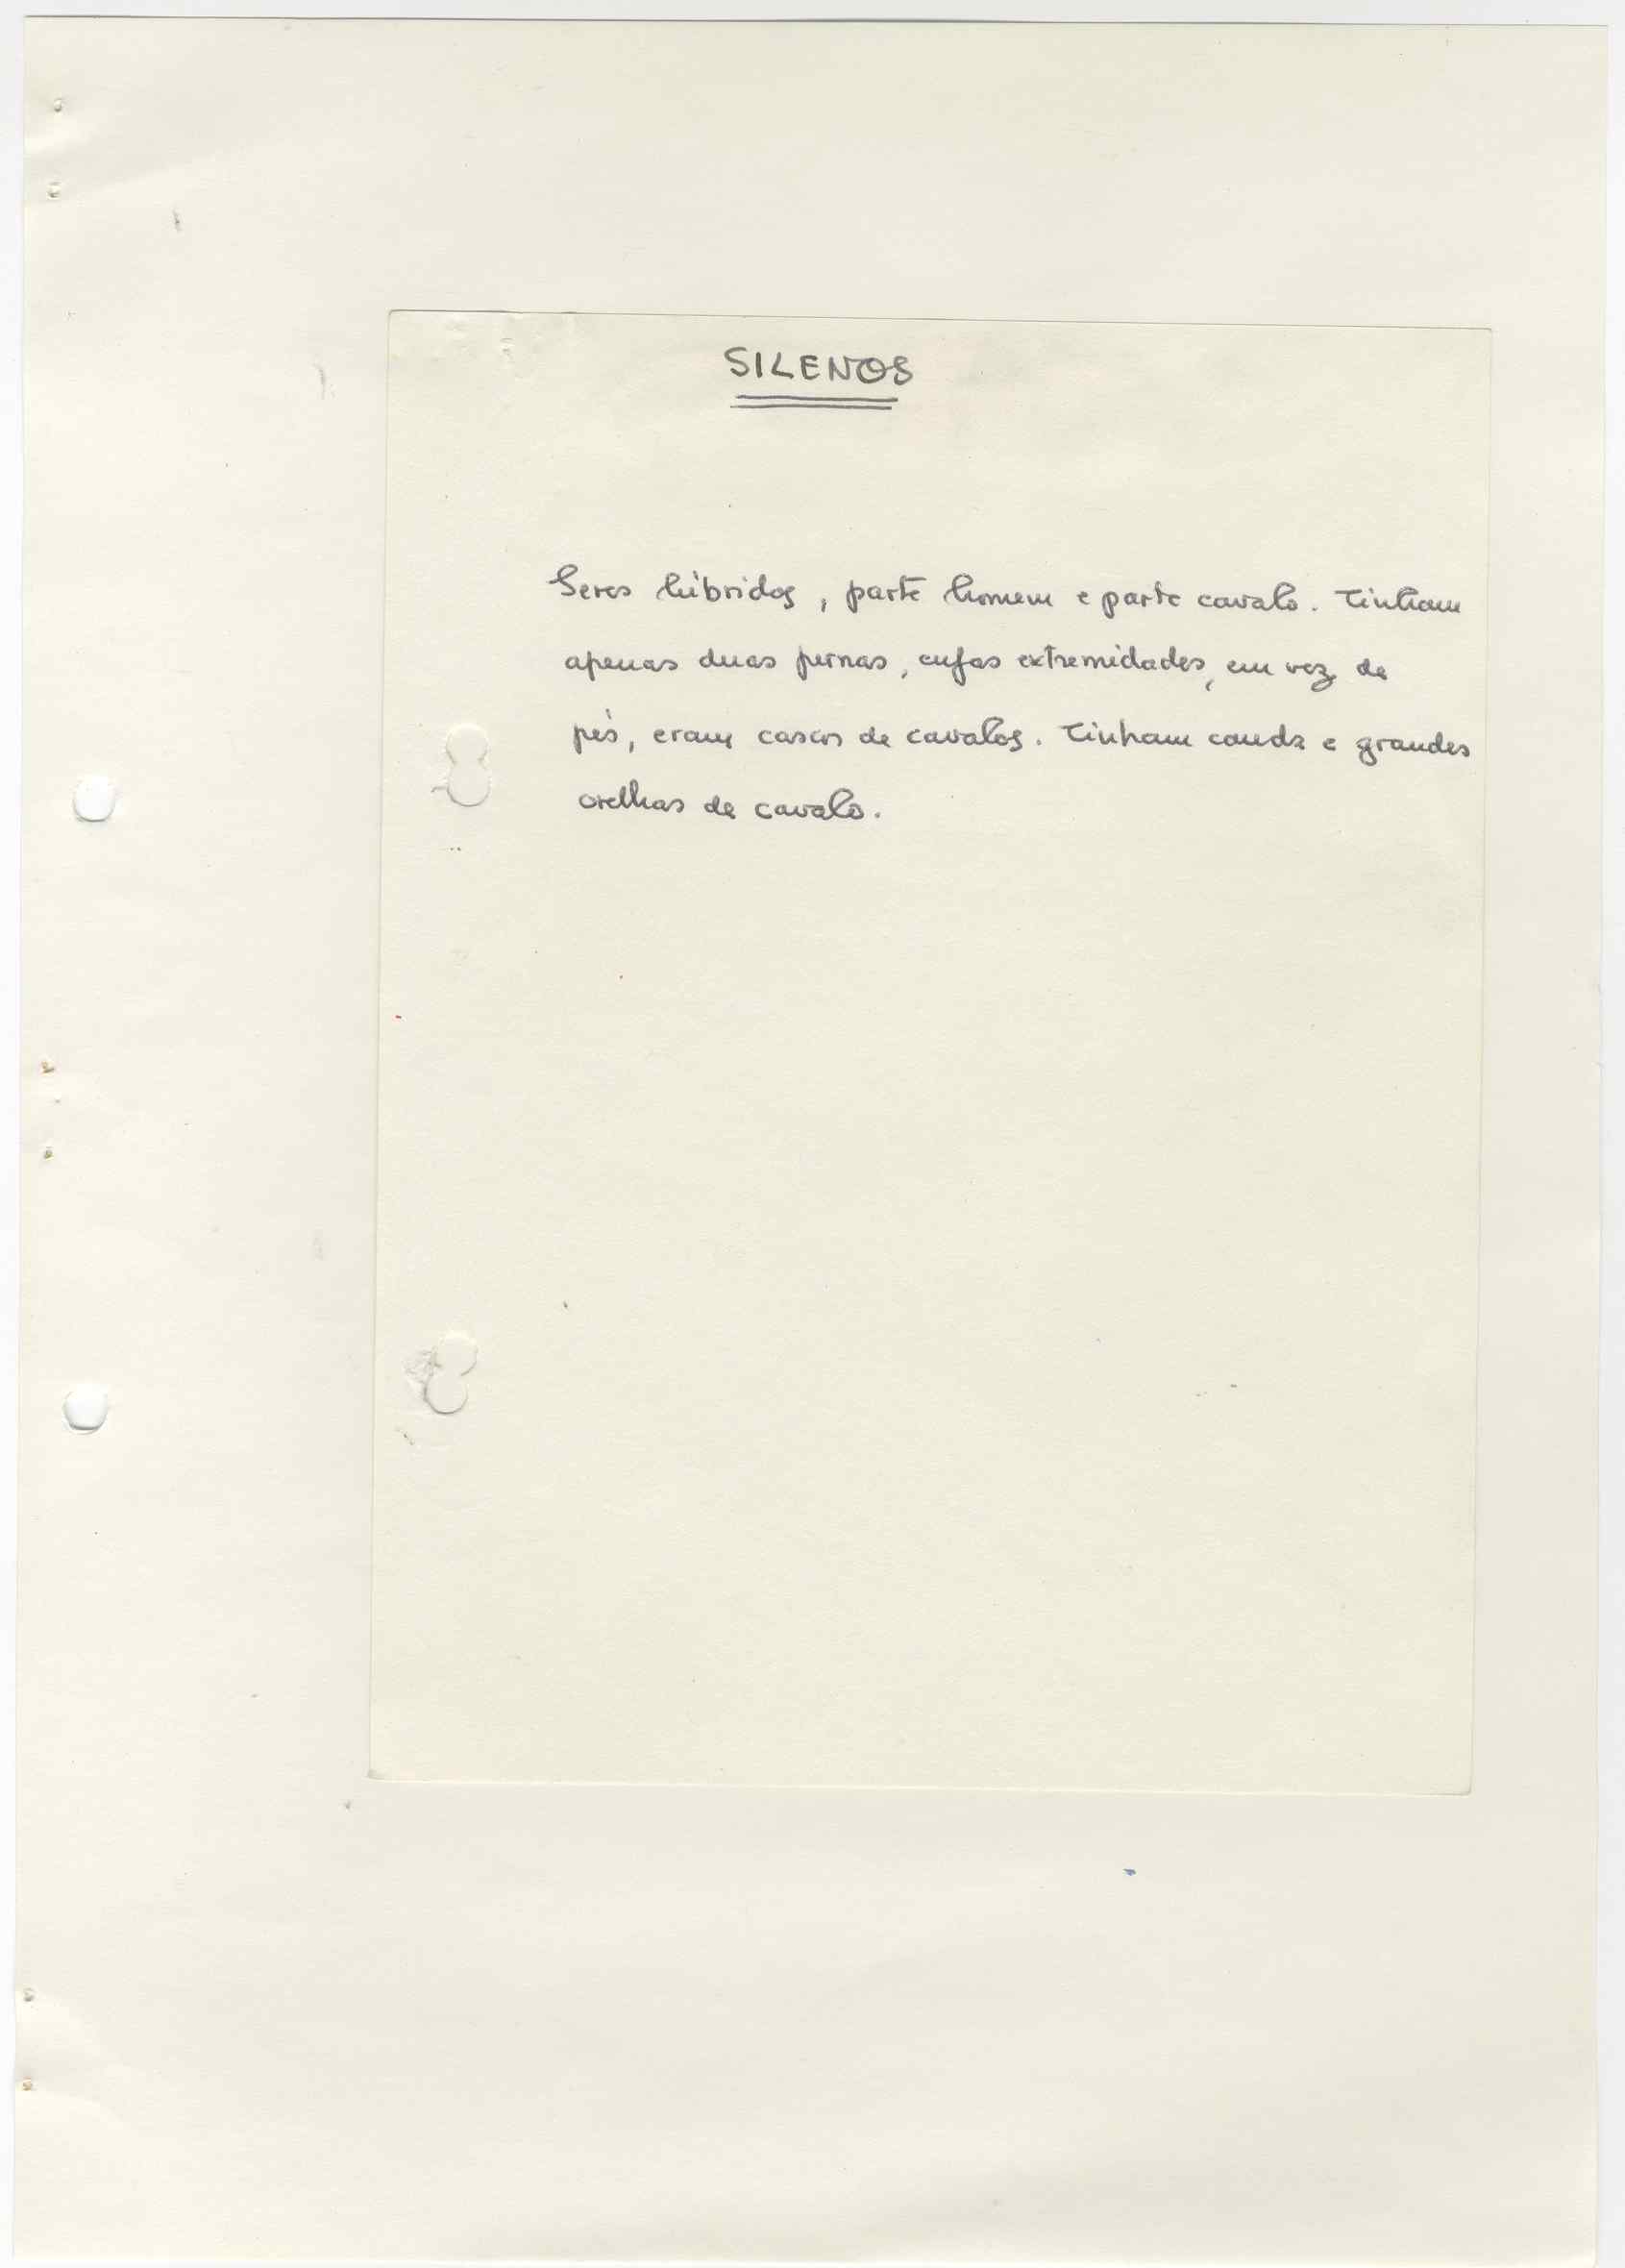 SILENOS
Seres híbridos, parte homem e parte cavalo. Tinham
apenas duas pernas, cujas extremidades, em vez de
pés, eram cascos de cavalos. Tinham cauda e grandes
orelhas de cavalo.